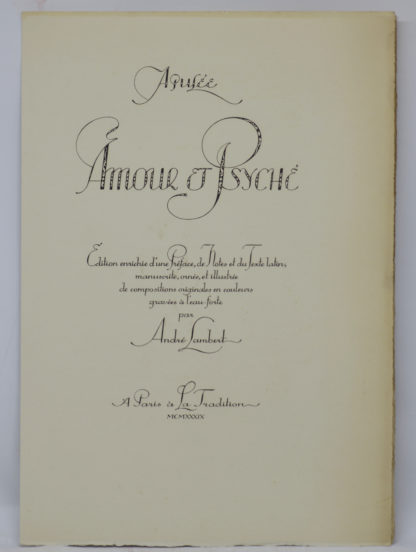 Apulée
Amour et Psyché
Édition enrichie d'une Préface, de Notes et du Texte latin,
manuscrite, ornée, et illustrée
de compositions originales en couleurs
gravées à l'eau-forte
par
André Lambert
A Paris à La Tradition
MCMXXXIX